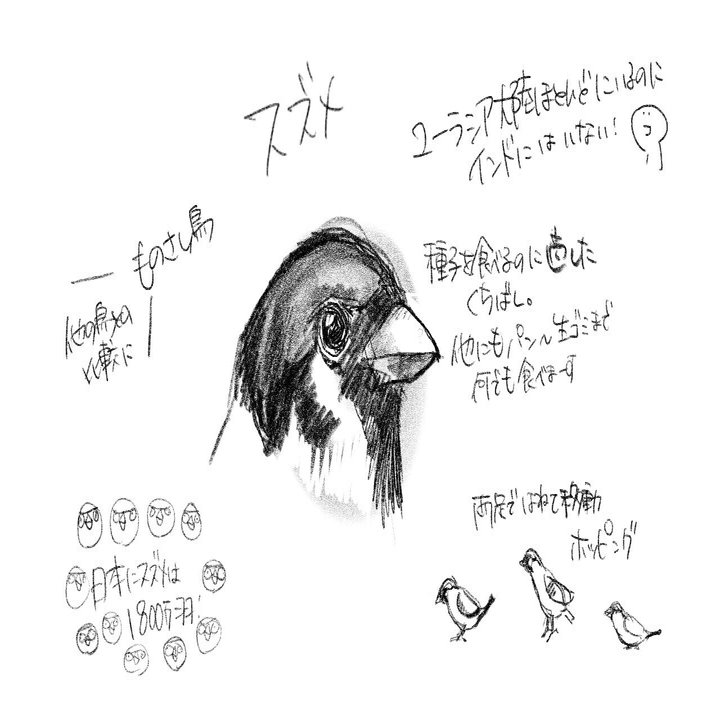 スズメ
ユーラシア大陸ほとんどにいるのに
インドにはいない!
ものさし鳥
他の鳥との
比較に
種子を食べるのに適した
くちばし。
他にもパン、生ゴミまで
何でも食べまーす
両足ではねて移動
ホッピング
日本にスズメは
1800万羽!